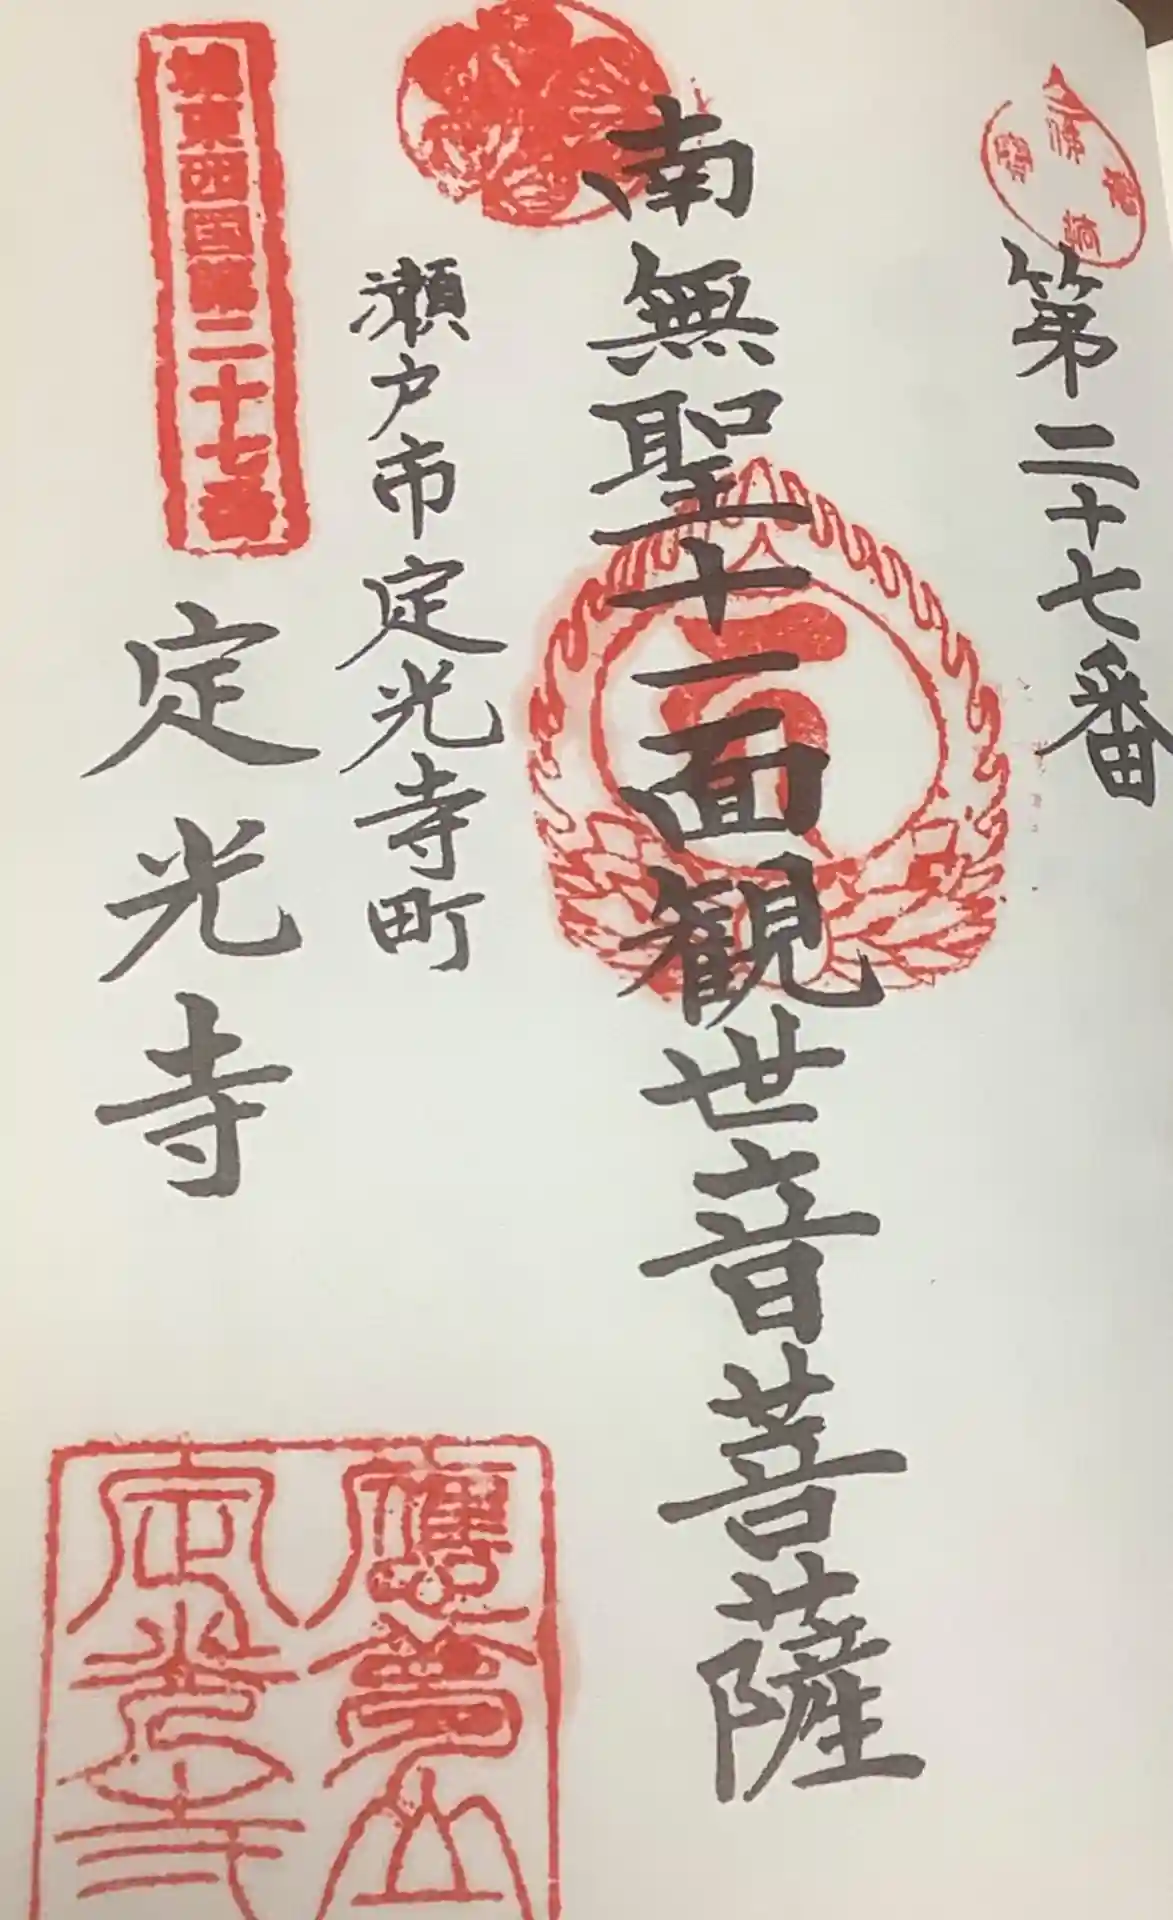 第二十七番
南無聖十一面観世音菩薩
瀬戸市定光寺町
城東西国第二十七番
定光寺
應夢山
定光寺